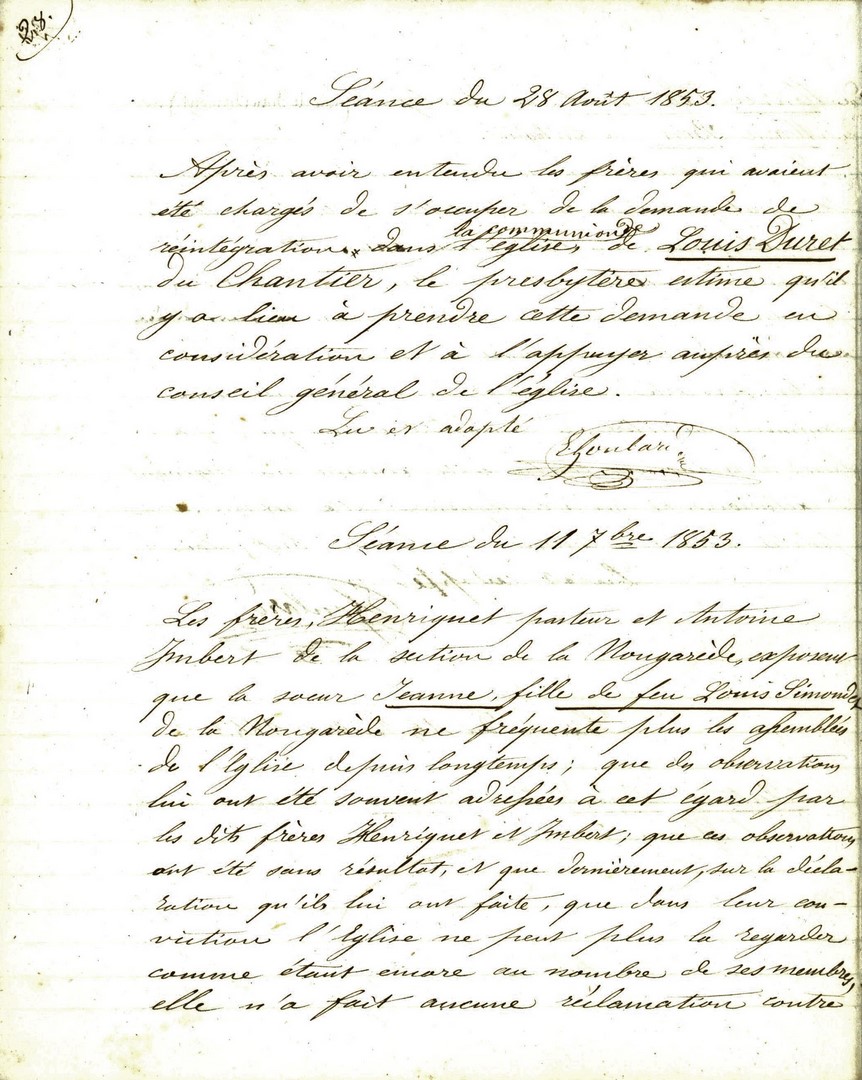 28.
Séance du 28 Août 1853.
Après avoir entendu les frères qui avaient
été chargés de s'occuper de la demande de
la communion de
réintégration dans l'église, de Louis Duret
du Chantier, le presbytère estime qu'il
y a lieu à prendre cette demande en
considération et à l'appuyer auprès du
conseil général de l'église.
Lu et adopté
Séance du 11 7bre 1853.
Les frères, Henriquet pasteur et Antoine
Imbert de la section de la Nougarède, exposent
que la soeur Jeanne, fille de feu Louis Simondet
de la Nougarède ne fréquente plus les assemblées
de l'Eglise depuis longtemps; que des observations
lui ont été souvent adressées à cet égard par
les dits frères Henriquet et Imbert; que ces observations
ont été sans résultat, et que dernièrement, sur la décla-
ration qu'ils lui ont faite, que dans leur con-
viction l'Eglise ne peut plus la regarder
comme étant encore au nombre de ses membres,
elle n'a fait aucune réclamation contre